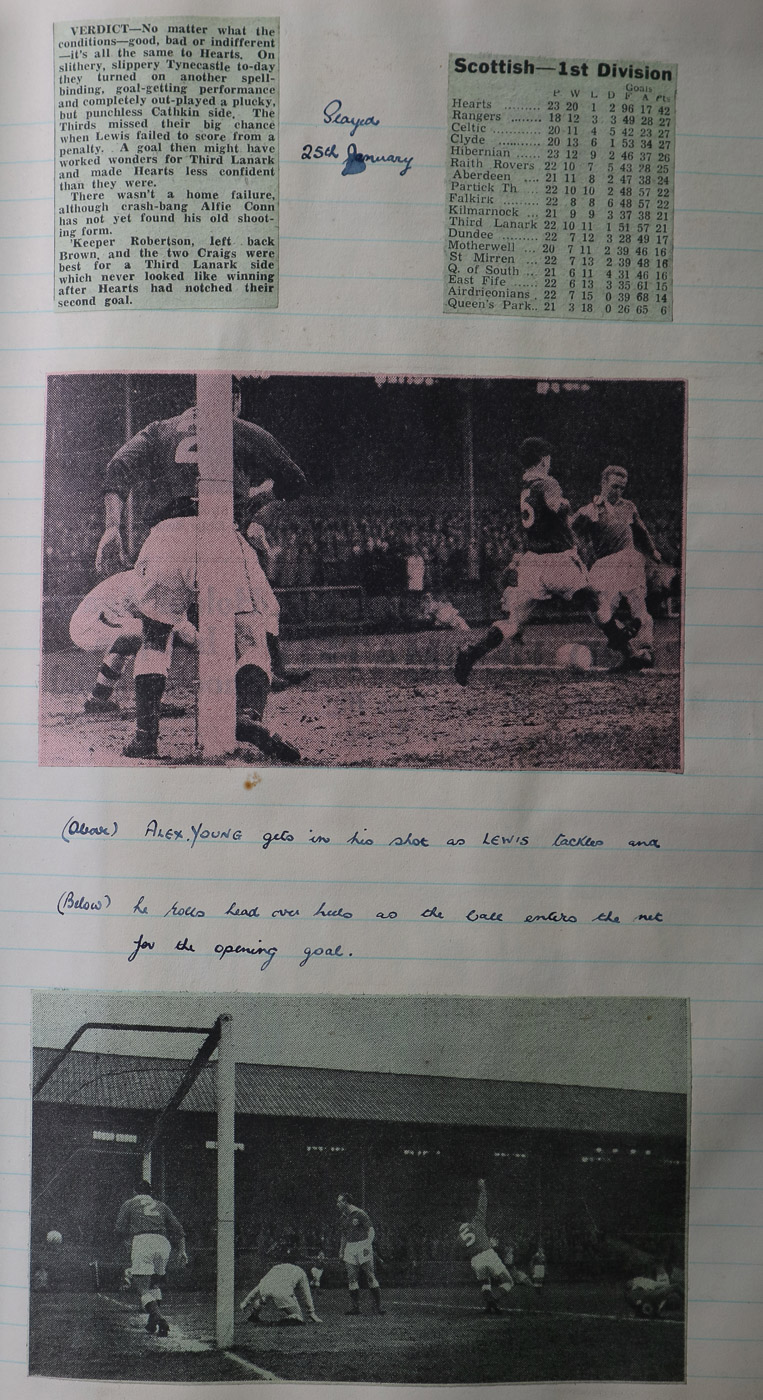 VERDICT—No matter what the
conditions—good, bad or indifferent
—it's all the same to Hearts. On
slithery, slippery Tynecastle to-day
they turned on another spell-
binding, goal-getting performance
and completely out-played a plucky,
but punchless Cathkin side. The
Thirds missed their big chance
when Lewis failed to score from a
penalty. A goal then might have
worked wonders for Third Lanark
and made Hearts less confident
than they were.
There wasn't a home failure,
although crash-bang Alfie Conn
has not yet found his old shoot-
ing form.
'Keeper Robertson, left back
Brown, and the two Craigs were
best for a Third Lanark side
which never looked like winning
after Hearts had notched their
second goal.
Played
25th January
Scottish—1st Division
Goals
P. W. L. D F. A. Pts
Hearts ......... 23 20 1 2 96 17 42
Rangers ........ 18 12 3 3 49 28 27
Celtic ............ 20 11 4 5 42 23 27
Clyde ........... 20 13 6 1 53 34 27
Hibernian ...... 23 12 9 2 46 37 26
Raith Rovers 22 10 7 5 43 28 25
Aberdeen ...... 21 11 8 2 47 38 24
Partick Th ... 22 10 10 2 48 57 22
Falkirk ......... 22 8 8 6 48 57 22
Kilmarnock ... 21 9 9 3 37 38 21
Third Lanark 22 10 11 1 51 57 21
Dundee ......... 22 7 12 3 28 49 17
Motherwell ... 20 7 11 2 39 46 16
St Mirren ... 22 7 13 2 39 48 16
Q. of South ... 21 6 11 4 31 46 16
East Fife ...... 22 6 13 3 35 61 15
Airdrieonians . 22 7 15 0 39 68 14
Queen's Park.. 21 3 18 0 26 65 6
2
5
(Above) ALEX. YOUNG gets in his shot as LEWIS tackles and
(Below) he rolls head over heels as the ball enters the net
for the opening goal.
2
5